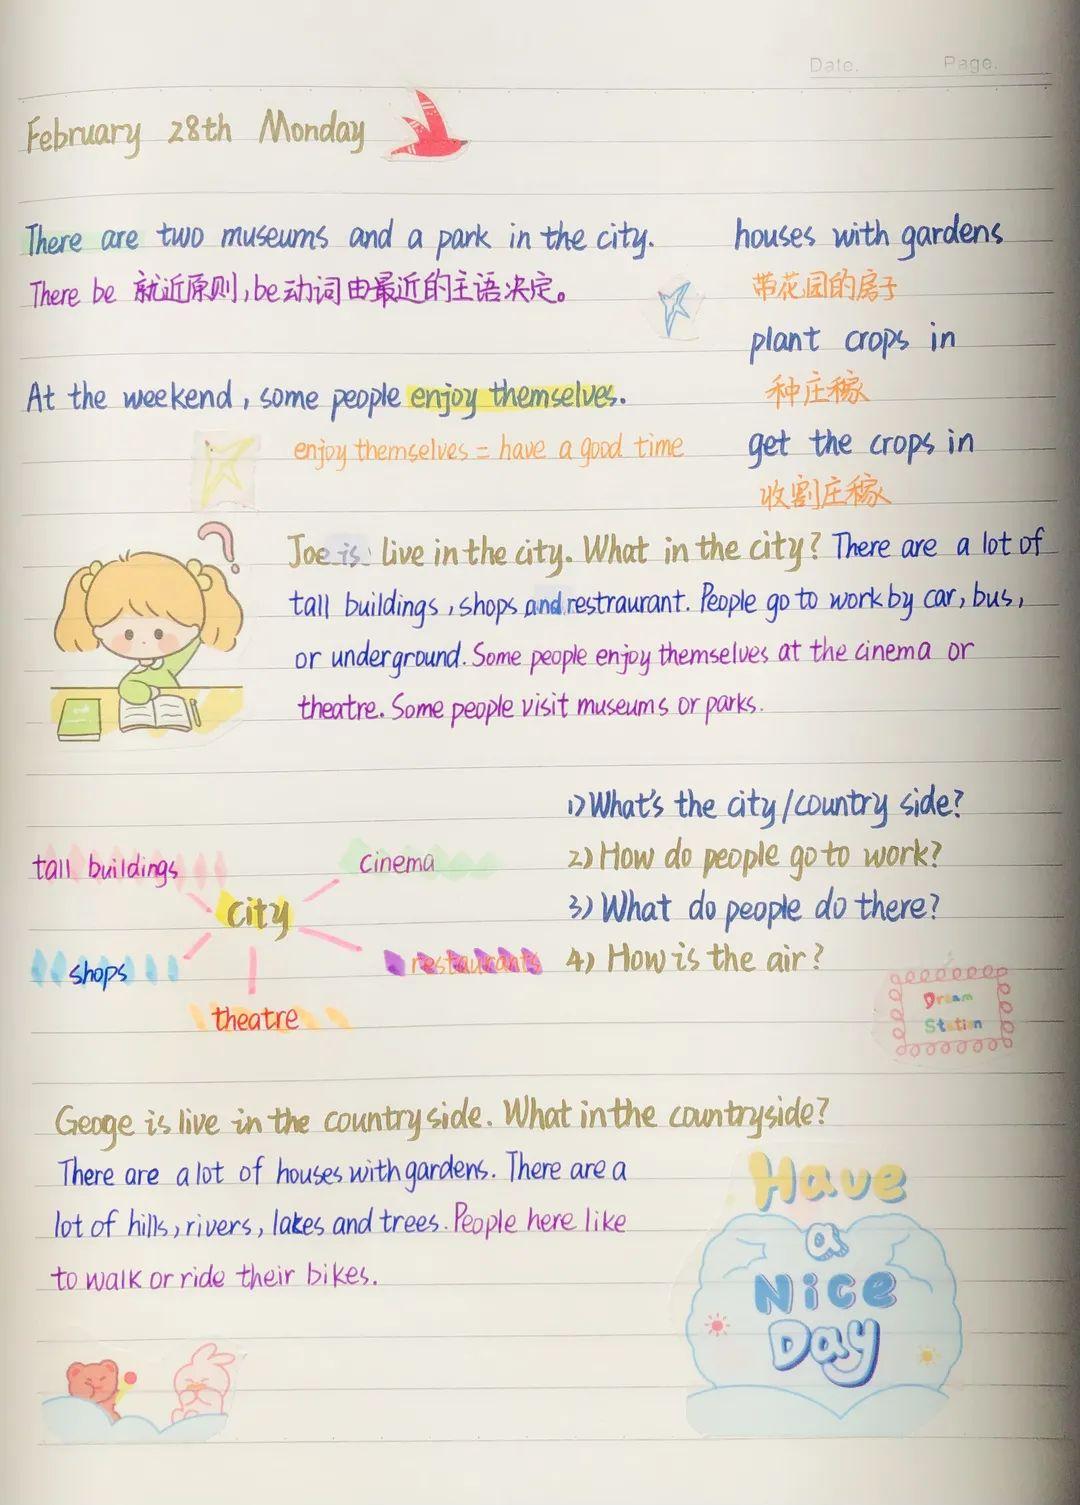 Date.
Page.
February 28th Monday
There are two museums and a park in the city.
There be 就近原则,be动词由最近的主语决定。
At the weekend, some people enjoy themselves.
enjoy themselves = have a good time
houses with gardens
带花园的房子
plant crops in
种庄稼
get the crops in
收割庄稼
Joe is live in the city. What in the city? There are a lot of
tall buildings, shops and restraurant. People go to work by car, bus,
or underground. Some people enjoy themselves at the cinema or
theatre. Some people visit museums or parks.
tall buildings
cinema
city
shops
restaurants
theatre
1) What's the city/country side?
2) How do people go to work?
3) What do people do there?
4) How is the air?
Dream
Station
Geoge is live in the country side. What in the countryside?
There are a lot of houses with gardens. There are a
lot of hills, rivers, lakes and trees. People here like
to walk or ride their bikes.
Have
a
Nice
Day